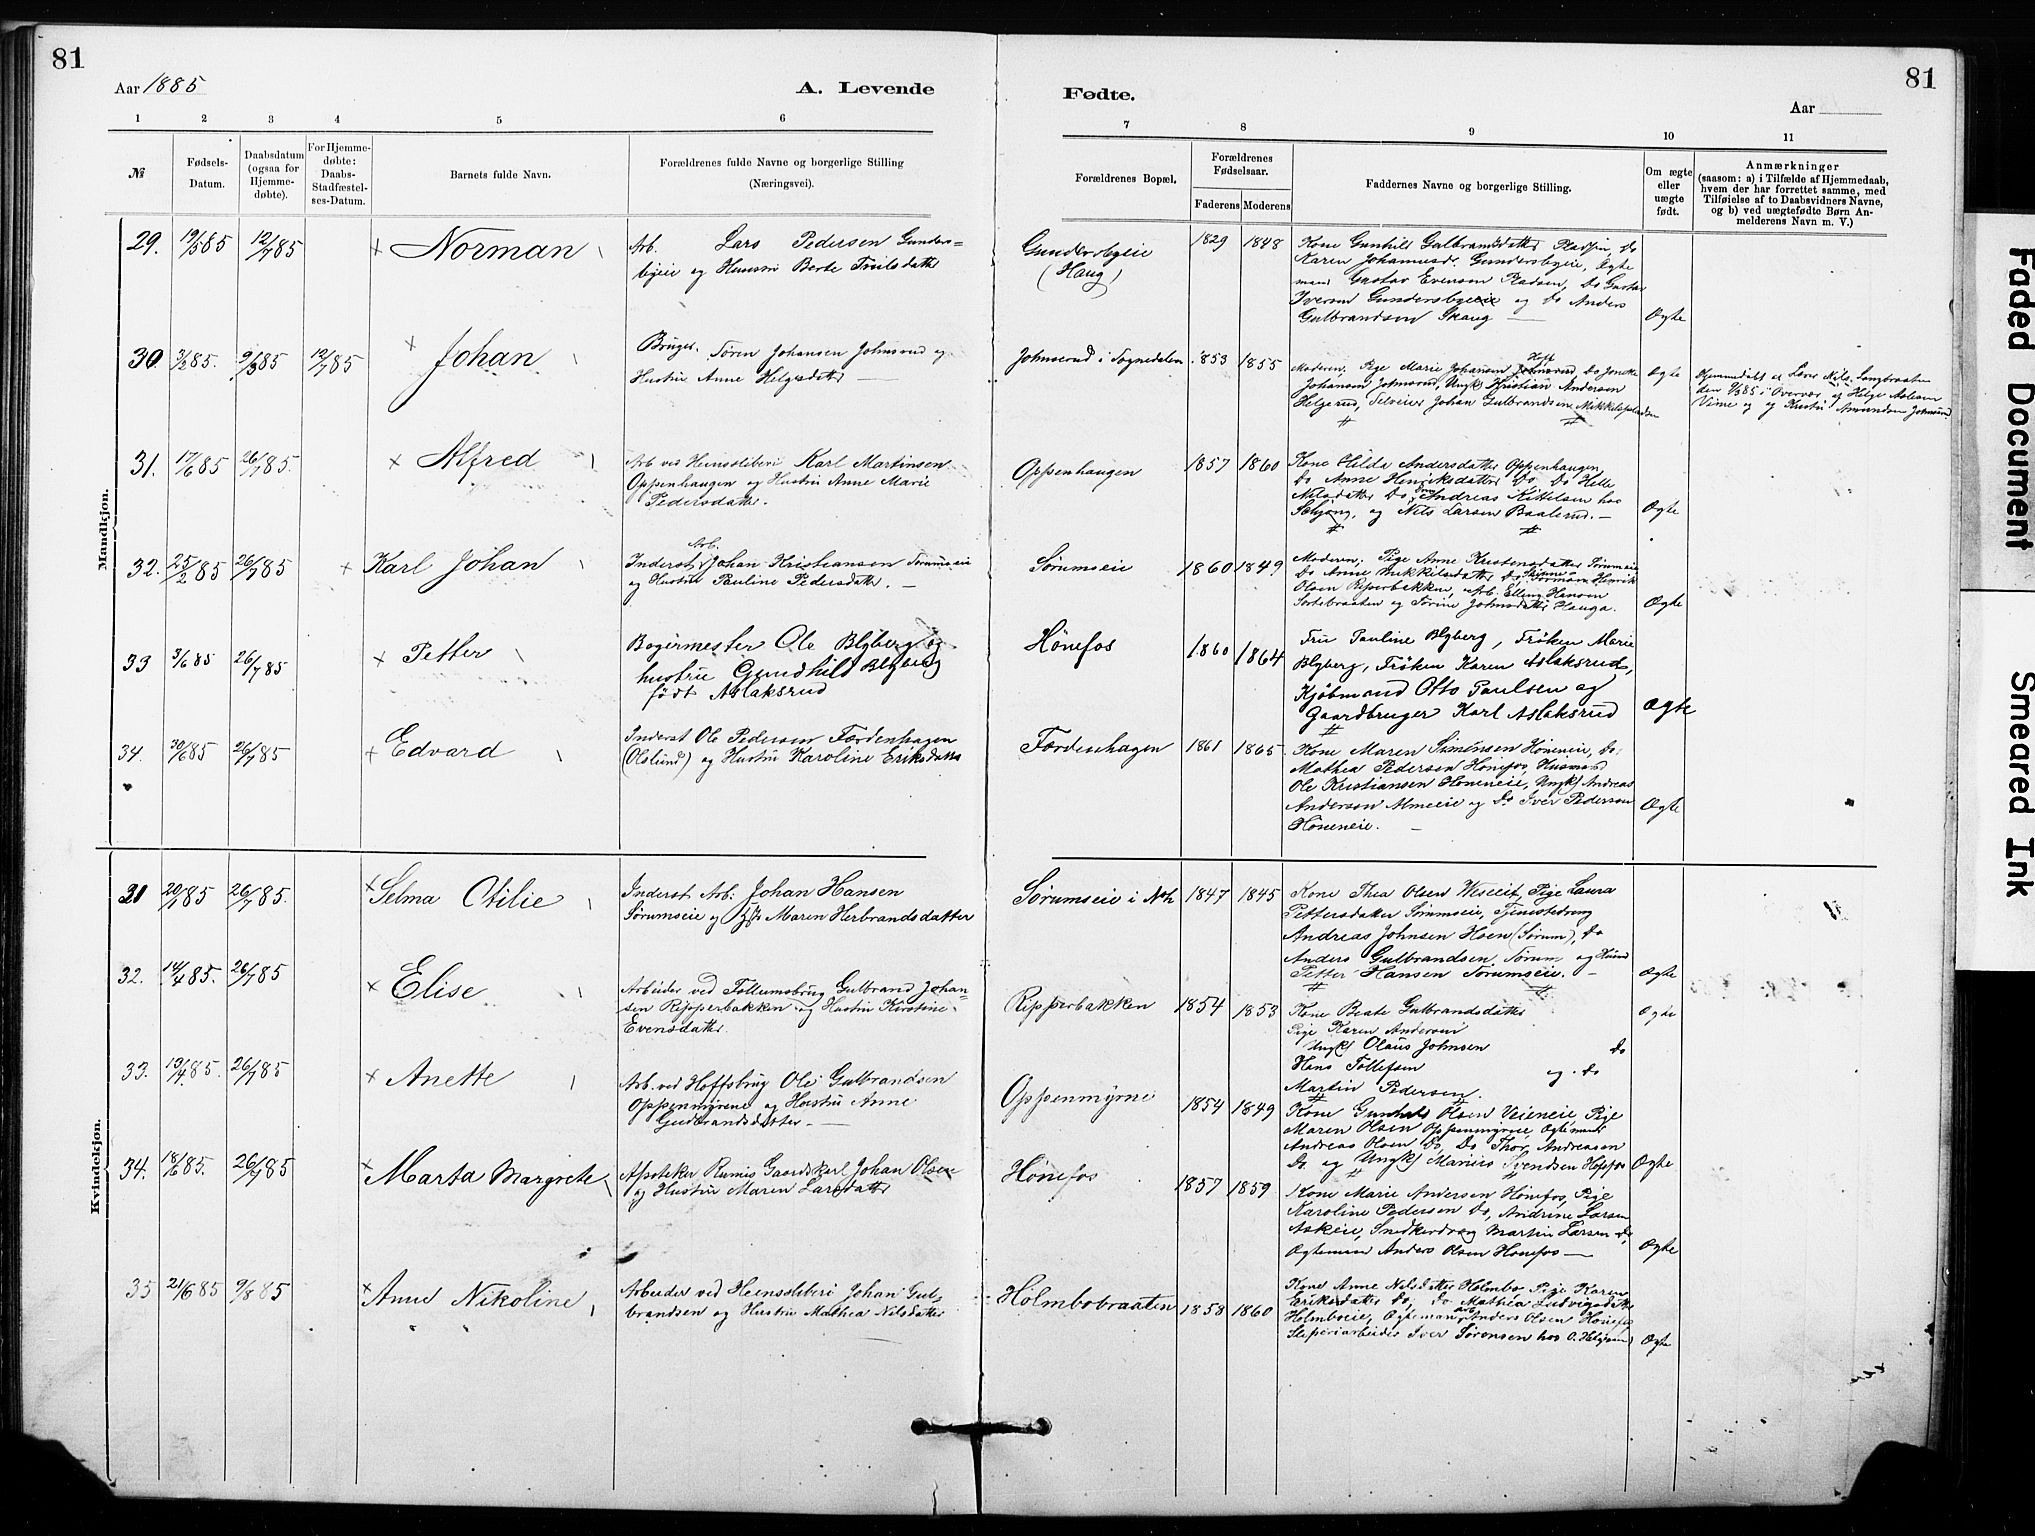 81
Aar 1885
A. Levende
Fødte.
81
Aar
1 2 3 4 5 6 7 8 9 10 11
№
Fødsels-
Datum.
Daabsdatum
(ogsaa for
Hjemme-
døbte).
For Hjemme-
døbte:
Daabs-
Stadfæstel-
ses-Datum.
Barnets fulde Navn.
Forældrenes fulde Navne og borgerlige Stilling
(Næringsvei).
Forældrenes Bopæl.
Forældrenes
Fødselsaar.
Faderens Moderens
Faddernes Navne og borgerlige Stilling.
Om ægte
eller
uægte
født.
Anmærkninger
(saasom: a) i Tilfælde af Hjemmedaab,
hvem der har forrettet samme, med
Tilføielse af to Daabsvidners Navne,
og b) ved uægtefødte Børn An-
melderens Navn m. V.)
Mandkjøn.
29. 19/5 85 12/7 85 × Norman
Arb. Lars Pedersen Gunders=
byeie og Hustru Berte
Gundersbyeie
(Haug)
1829 1848
Kone Gunhild Gulbrandsdatter Pladsen Do
Karen Johannesd. Gundersbyeie, Ægte
mand Gustav Evensen Pladsen, Do Gustav
Iversen Gundersbyeie og Do Anders
Gulbrandsen Skaug —
Ægte
30. 3/2 85. 9/3 85 12/7 85 × Johan
Bruger. Søren Johansen Johnsrud og
Hustru Anne Helgesdatter —
Johnserud i Sognedalen
1853 1855
Moderen, Pige Marie Johansen Do
Johansen Johnsrud, Ungk. Kristian Andersen
Helgerud, Selveier Johan Gulbrandsen Mikkelspladsen
Ægte
Hjemmedøbt af Lærer Nils Langbraaten
den 9/3 85 i Overvær af Helge Aslesen
Vime og Hustru Johnsrud
31. 17/6 85 26/7 85. × Alfred
Arb. ved Heensliberi Karl Martinsen
Oppenhaugen og Hustru Anne Marie
Pedersdatter.
Oppenhaugen
1857 1860
Kone Hilda Andersdatter Oppenhaugen,
Do Anne Henriksdatter Do, Do Helle
Nilsdatter Do, Andreas Kittelsen hos
Schjong, og Nils Larsen Baalerud. —
Ægte
32. 25/2 85 26/7 85 × Karl Johan
Arb.
Inderst Johan Kristiansen Sørumseie
og Hustru Pauline Pedersdatter. —
Sørumseie
1860 1849
Moderen, Pige Anne Kristensdatter Sørumseie
Do Anne Mikkelsdatter Do, Henrik
Olsen Ripperbakken, Arb. Elling Hansen
Sortebraaten og Sørine Johnsdatter Hauga.
Ægte
33 3/6 85 26/7 85 × Petter
Bogermester Ole Blyberg og
hustru Gundhild Blyberg
født Aslaksrud
Hønefos
1860 1864
Fru Pauline Blyberg, Frøken Marie
Blyberg, Frøken Karen Aslaksrud,
Kjøbmand Otto Paulsen og
Gaardbruger Karl Aslaksrud
Ægte
34. 30/6 85 26/7 85 × Edvard
Inderst Ole Pedersen Færdenhagen
(Olslund) og Hustru Karoline Eriksdatter
Færdenhagen
1861 1865
Kone Maren Simensen Høneneie, Do:
Mathea Pedersen Hønefos, Husmand
Ole Kristiansen Høneneie, Ungk. Andreas
Andersen Almeie og Do Iver Pedersen
Høneneie. —
Ægte
Kvindekjøn.
31 20/1 85 26/7 85. × Selma Otilie
Inderst Arb: Johan Hansen
Sørumseie og H. Maren Herbrandsdatter
Sørumseie i Noh.
1847 1845
Kone Thea Olsen, Pige Laura
Pettersdatter Sørumseie, Tjenestedreng
Andreas Johnsen Hoen (Sørum), Do
Anders Gulbrandsen Sørum og
Petter Hansen Sørumseie. —
Ægte
32. 14/4 85. 26/7 85 × Elise
Arbeider ved Follumsbrug Gulbrand Johan=
sen Ripperbakken og Hustru Kirstine
Evensdatter.
Ripperbakken
1854 1853
Kone Beate Gulbrandsdatter
Pige Karen Andersen
Ungk. Olaus Johnsen Do
Hans Tollefsen og Do
Martin Pedersen.
Ægte
33. 19/4 85. 26/7 85 × Anette
Arb. ved Hoffsbrug Ole Gulbrandsen
Oppenmyrene og Hustru Anne
Gudbrandsdatter. —
Oppenmyrne
1854 1849
Kone Gunhild Olsen Veieneie, Pige
Maren Olsen Oppenmyrene, Ægtemand
Andreas Olsen Do, Do Thor Andreasen
Do og Ungk. Marius Svendsen
Ægte
34. 18/6 85. 26/7 85 × Marta Margrete
Apoteker Rumis Gaardskarl Johan Olsen
og Hustru Maren Larsdatter
Hønefos
1857 1859
Kone Marie Andersen Hønefos, Pige
Karoline Pedersen Do, Andrine Larsen
Askeie, Snedkerdreng Martin Larsen Do,
Ægtemand Anders Olsen Hønefos —
Ægte
35 21/6 85 9/8 85 × Anne Nikoline
Arbeider ved Heensliberi Johan Gul-
brandsen og Hustru Mathea Nilsdatter
Holmbobraaten
1858 1860
Kone Anne Nilsdatter Holmbo, Pige Karen
Eriksdatter Do, Do Mathea Ludvigsdatter
Holmboeie, Ægtemand Anders Olsen Hønefos
Sliperiarbeider Iver Sørensen hos O. Helgesen
Ægte
Faded Document
Smeared Ink